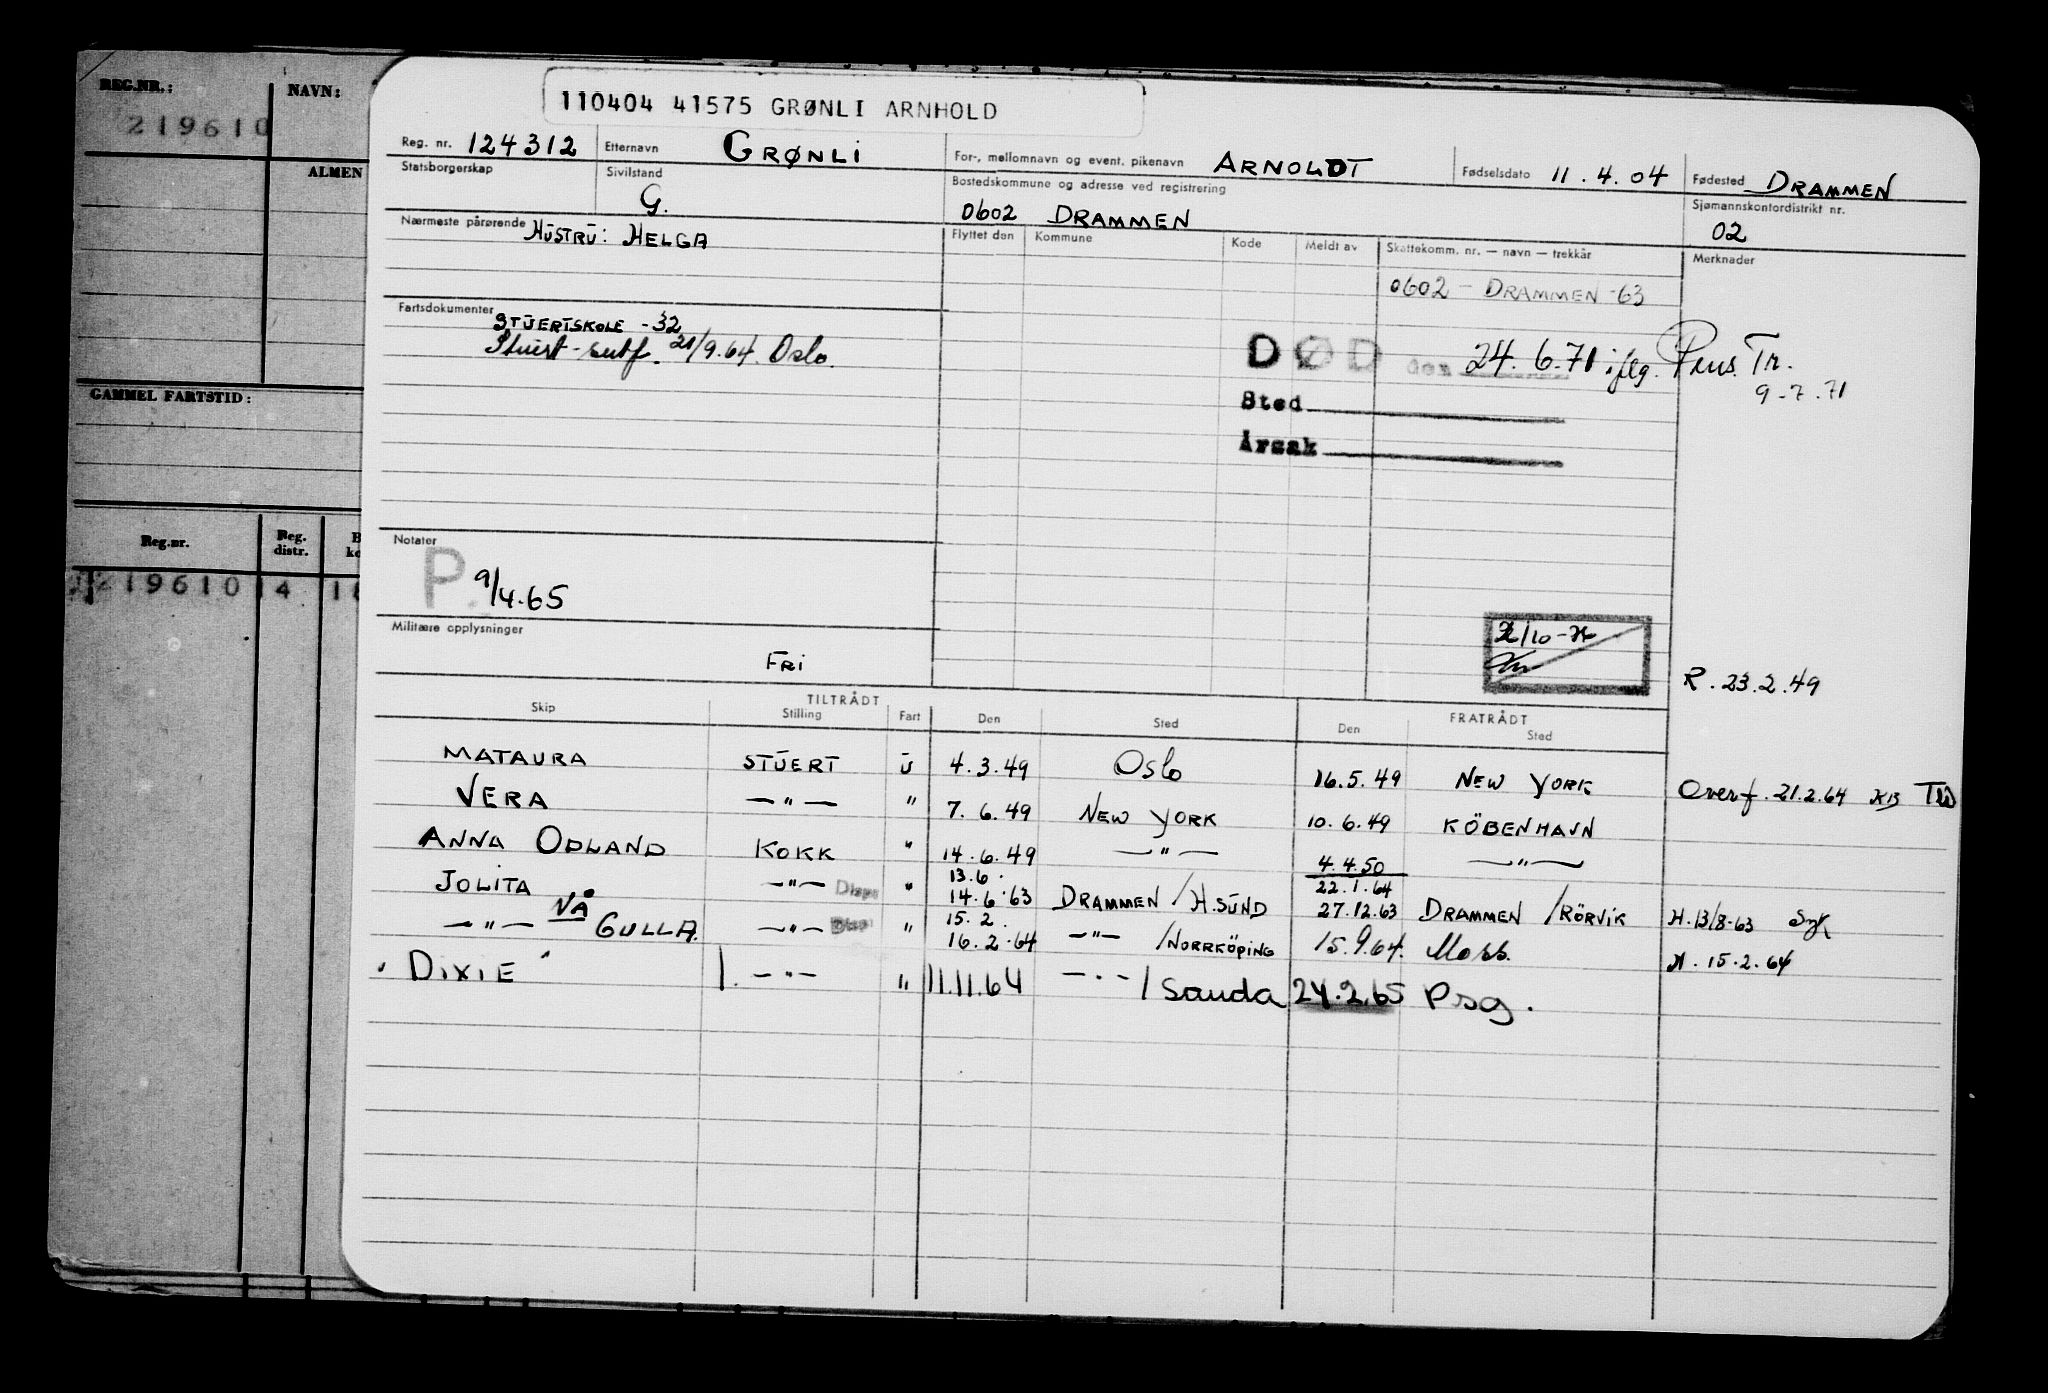 REG.NR.: NAVN:
219610
ALMEN
GAMMEL FARTSTID:
Reg.nr. Reg. distr.
219610 14
110404 41575 GRØNLI ARNHOLD
Reg. nr. 124312 Etternavn GRØNLI For-, mellomnavn og event. pikenavn ARNOLDT Fødselsdato 11.4.04 Fødested DRAMMEN
Statsborgerskap Sivilstand G. Bostedskommune og adresse ved registrering 0602 DRAMMEN Sjømannskontordistrikt nr. 02
Nærmeste pårørende HUSTRU: HELGA Flyttet den Kommune Kode Meldt av Skattekomm. nr. — navn — trekkår Merknader
0602 - DRAMMEN -63
Fartsdokumenter STUERTSKOLE -32
Stuert-sertf. 21/9.64. Oslo.
DØD den 24.6.71 iflg. Pens. Tr.
9-7.71
Sted
Årsak
Notater
P. 9/4.65
Militære opplysninger
FRI
R. 23.2.49
TILTRÅDT FRATRÅDT
Skip Stilling Fart Den Sted Den Sted
MATAURA STUERT U 4.3.49 Oslo 16.5.49 NEW YORK Overf. 21.2.64 KB
VERA —"— " 7.6.49 NEW YORK 10.6.49 KÖBENHAVN
ANNA ODLAND KOKK " 14.6.49 —"— 4.4.50 —"—
JOLITA —"— Disp " 13.6. 14.6.63 DRAMMEN / H.SUND 22.1.64 27.12.63 DRAMMEN / RÖRVIK H.13/8-63
—"— NÅ GULLA. —"— Disp " 15.2. 16.2.64 —"— / NORRKÖPING 15.9.64. Moss. H. 15.2.64
"DIXIE" 1. —"— " 11.11.64 —"— / Sauda 24.2.65 Psg.